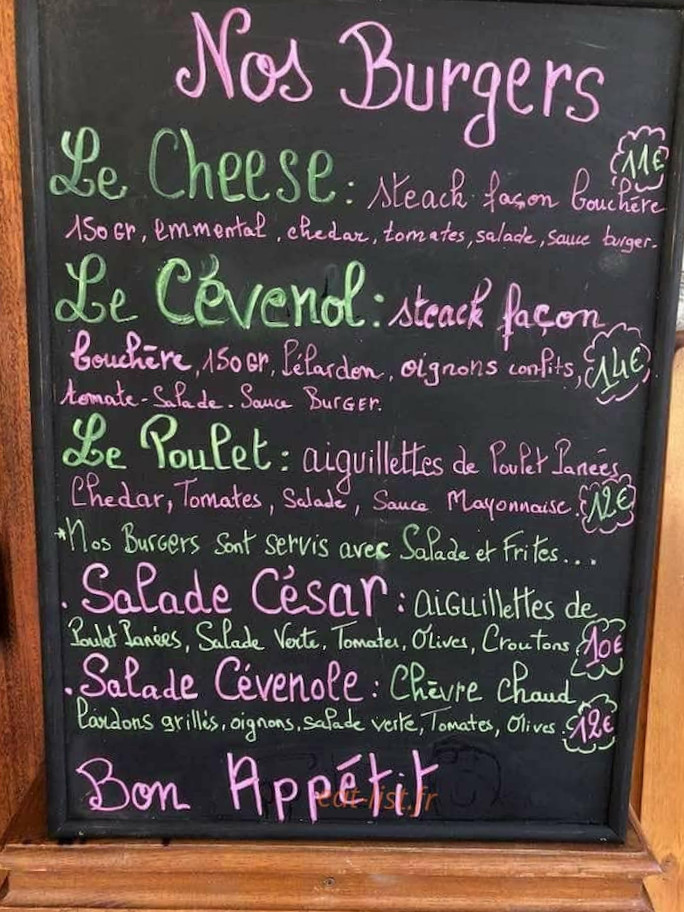 Nos Burgers
11€
Le Cheese: steack façon bouchère
150 Gr, emmental, chedar, tomates, salade, sauce burger.
Le Cévenol: steack façon
bouchère, 150 Gr, Pélardon, oignons confits,
14€
tomate-Salade. Sauce BURGER.
Le Poulet: aiguillettes de Poulet Panées
Chedar, Tomates, Salade, Sauce Mayonnaise. 12€
*Nos Burgers sont servis avec Salade et Frites...
. Salade César: aiguillettes de
Poulet Panées, Salade Verte, Tomates, Olives, Croutons 10€
. Salade Cévenole: Chèvre chaud
lardons grillés, oignons, salade verte, Tomates, Olives. 12€
Bon Appétit
eat-list.fr